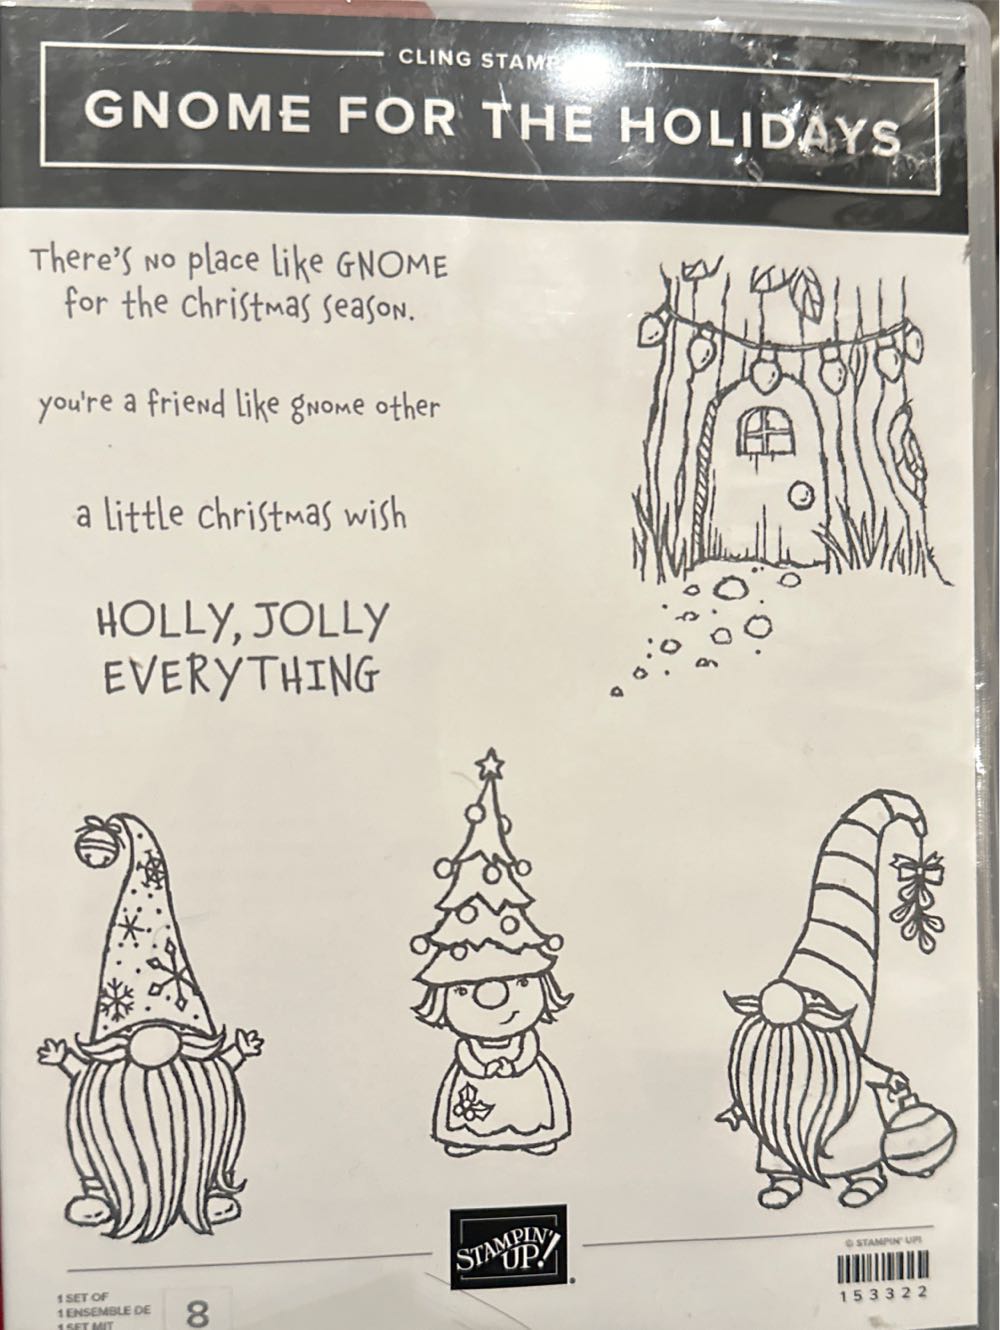 CLING STAMP
GNOME FOR THE HOLIDAYS
There's no place like GNOME
for the Christmas season.
you're a friend like gnome other
a little Christmas wish
HOLLY, JOLLY
EVERYTHING
STAMPIN'
UP!
© STAMPIN' UP!
153322
1 SET OF
1 ENSEMBLE DE
1 SET MIT
8